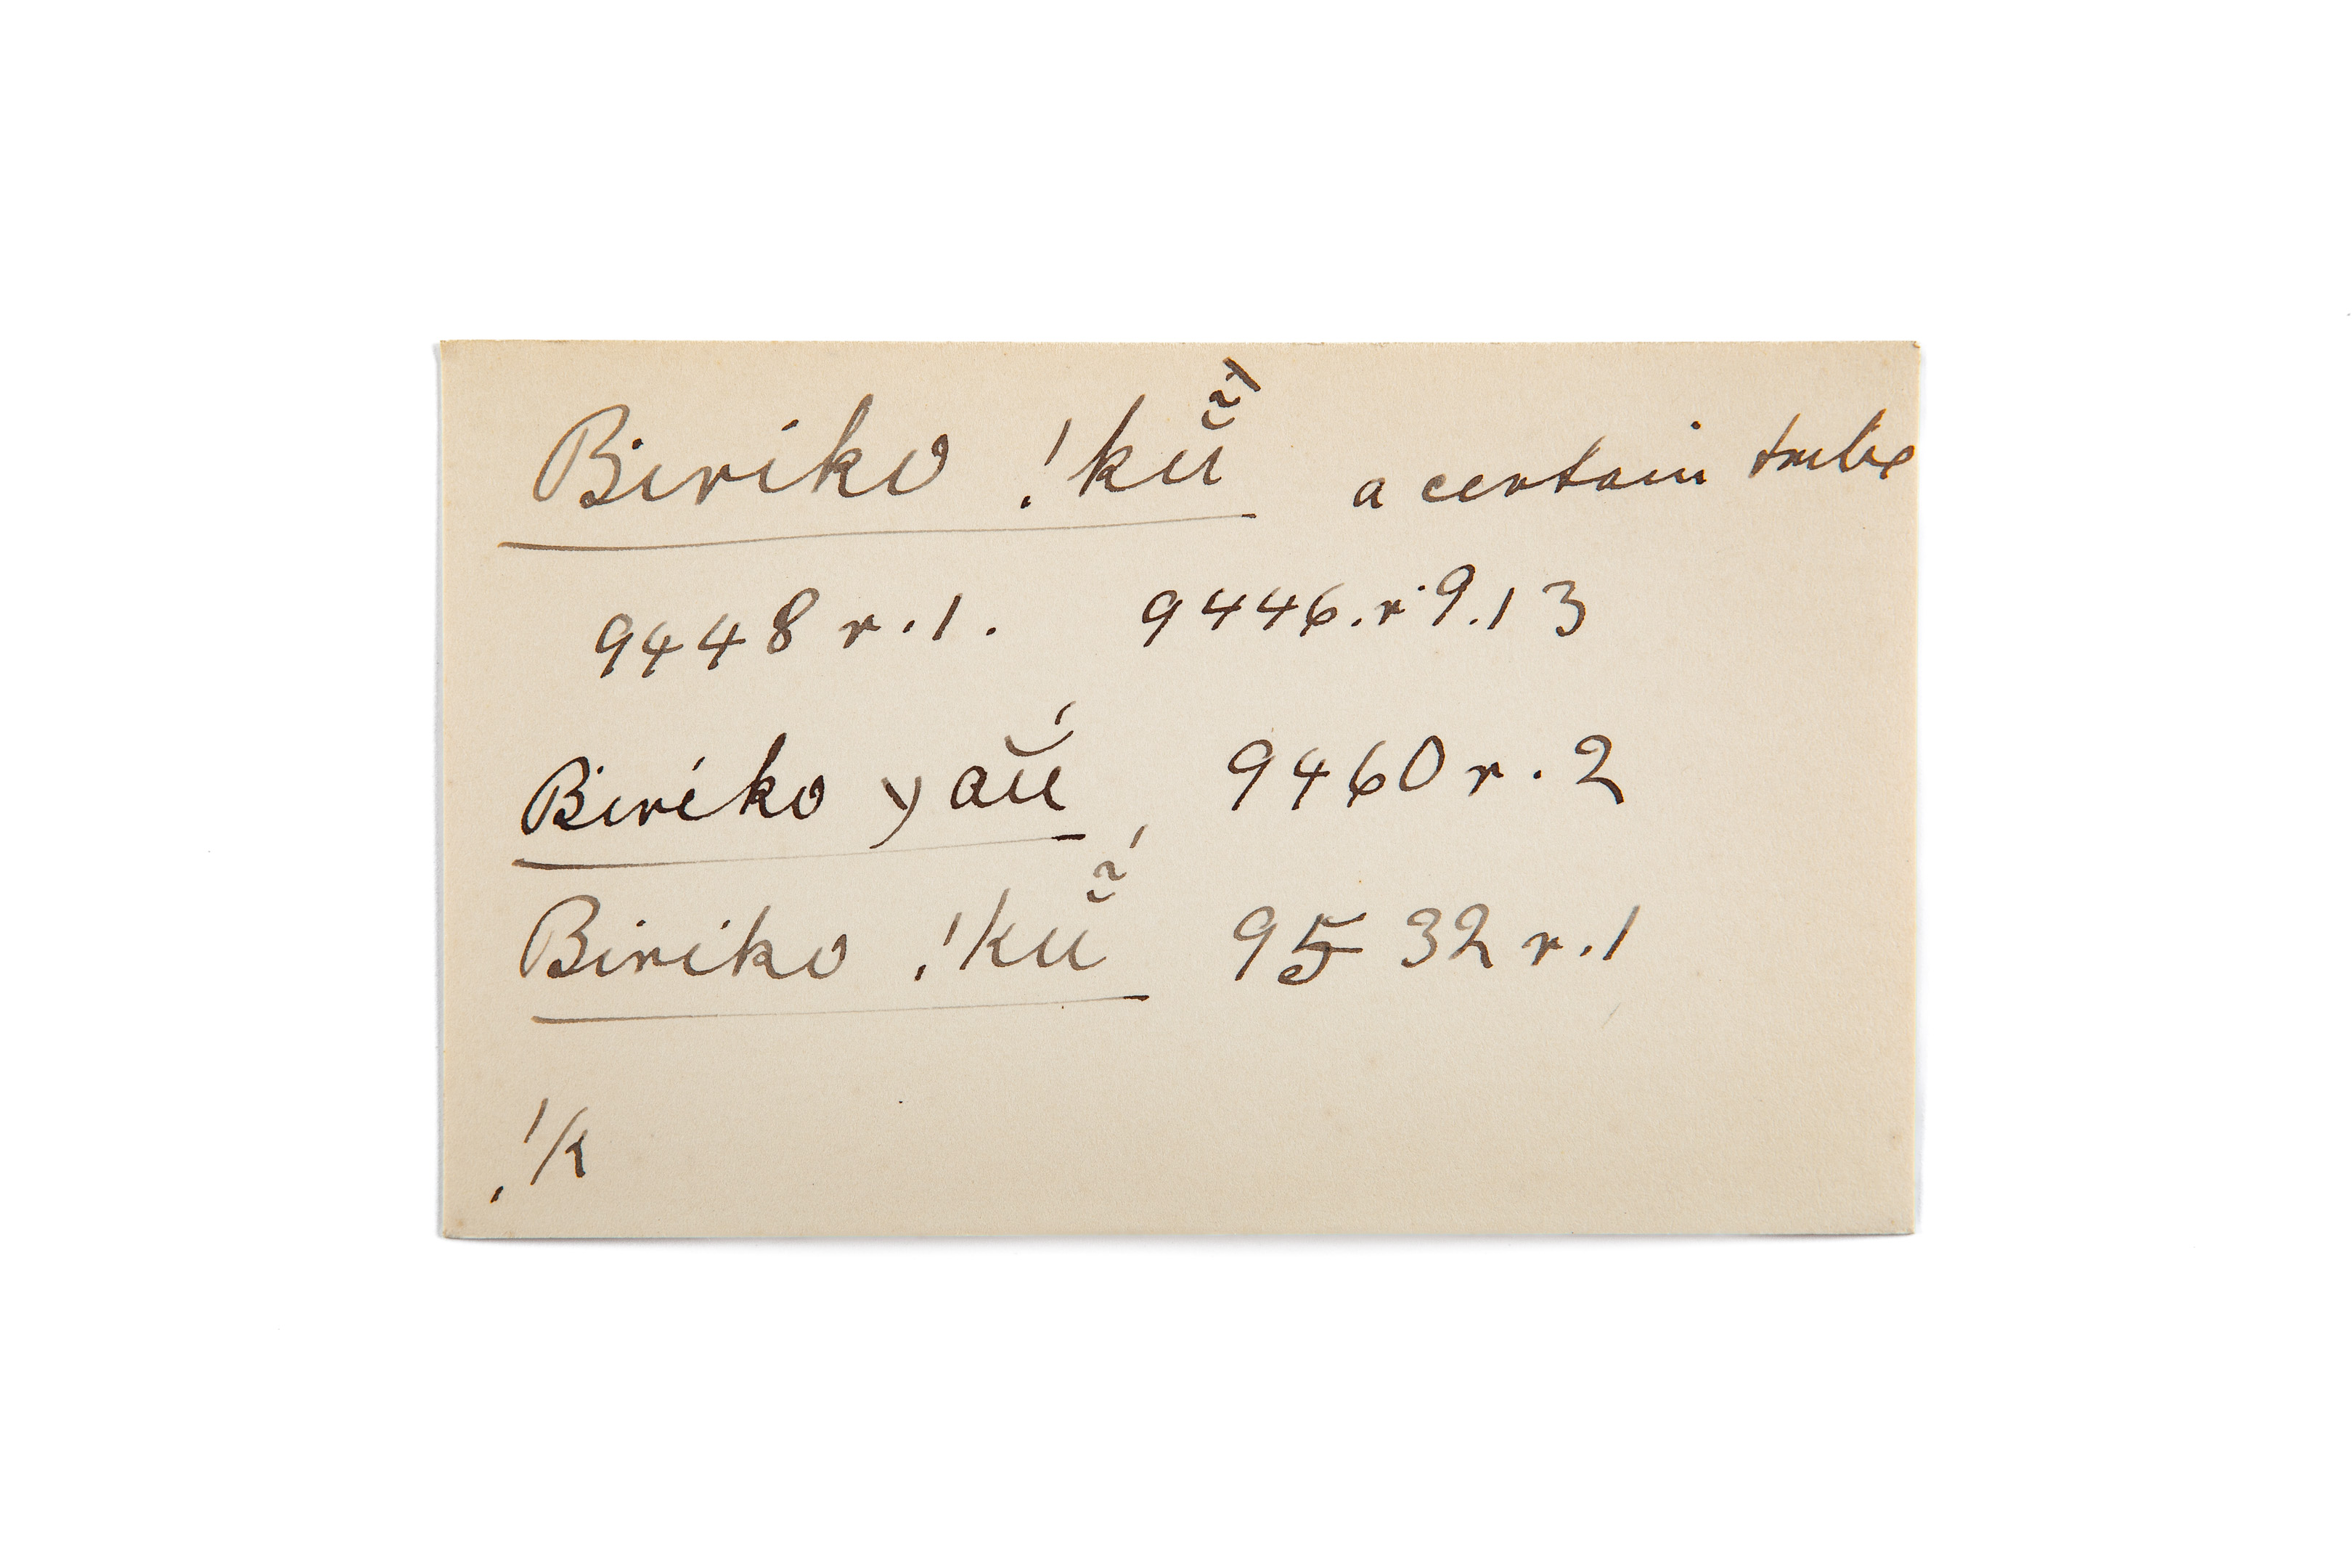 Biriko !kŭ̃́ a certain tribe
9448 r.1. 9446.r.9.13
Biriko yaŭ́, 9460 r.2
Biriko !kŭ̃́ 9532 r.1
!k